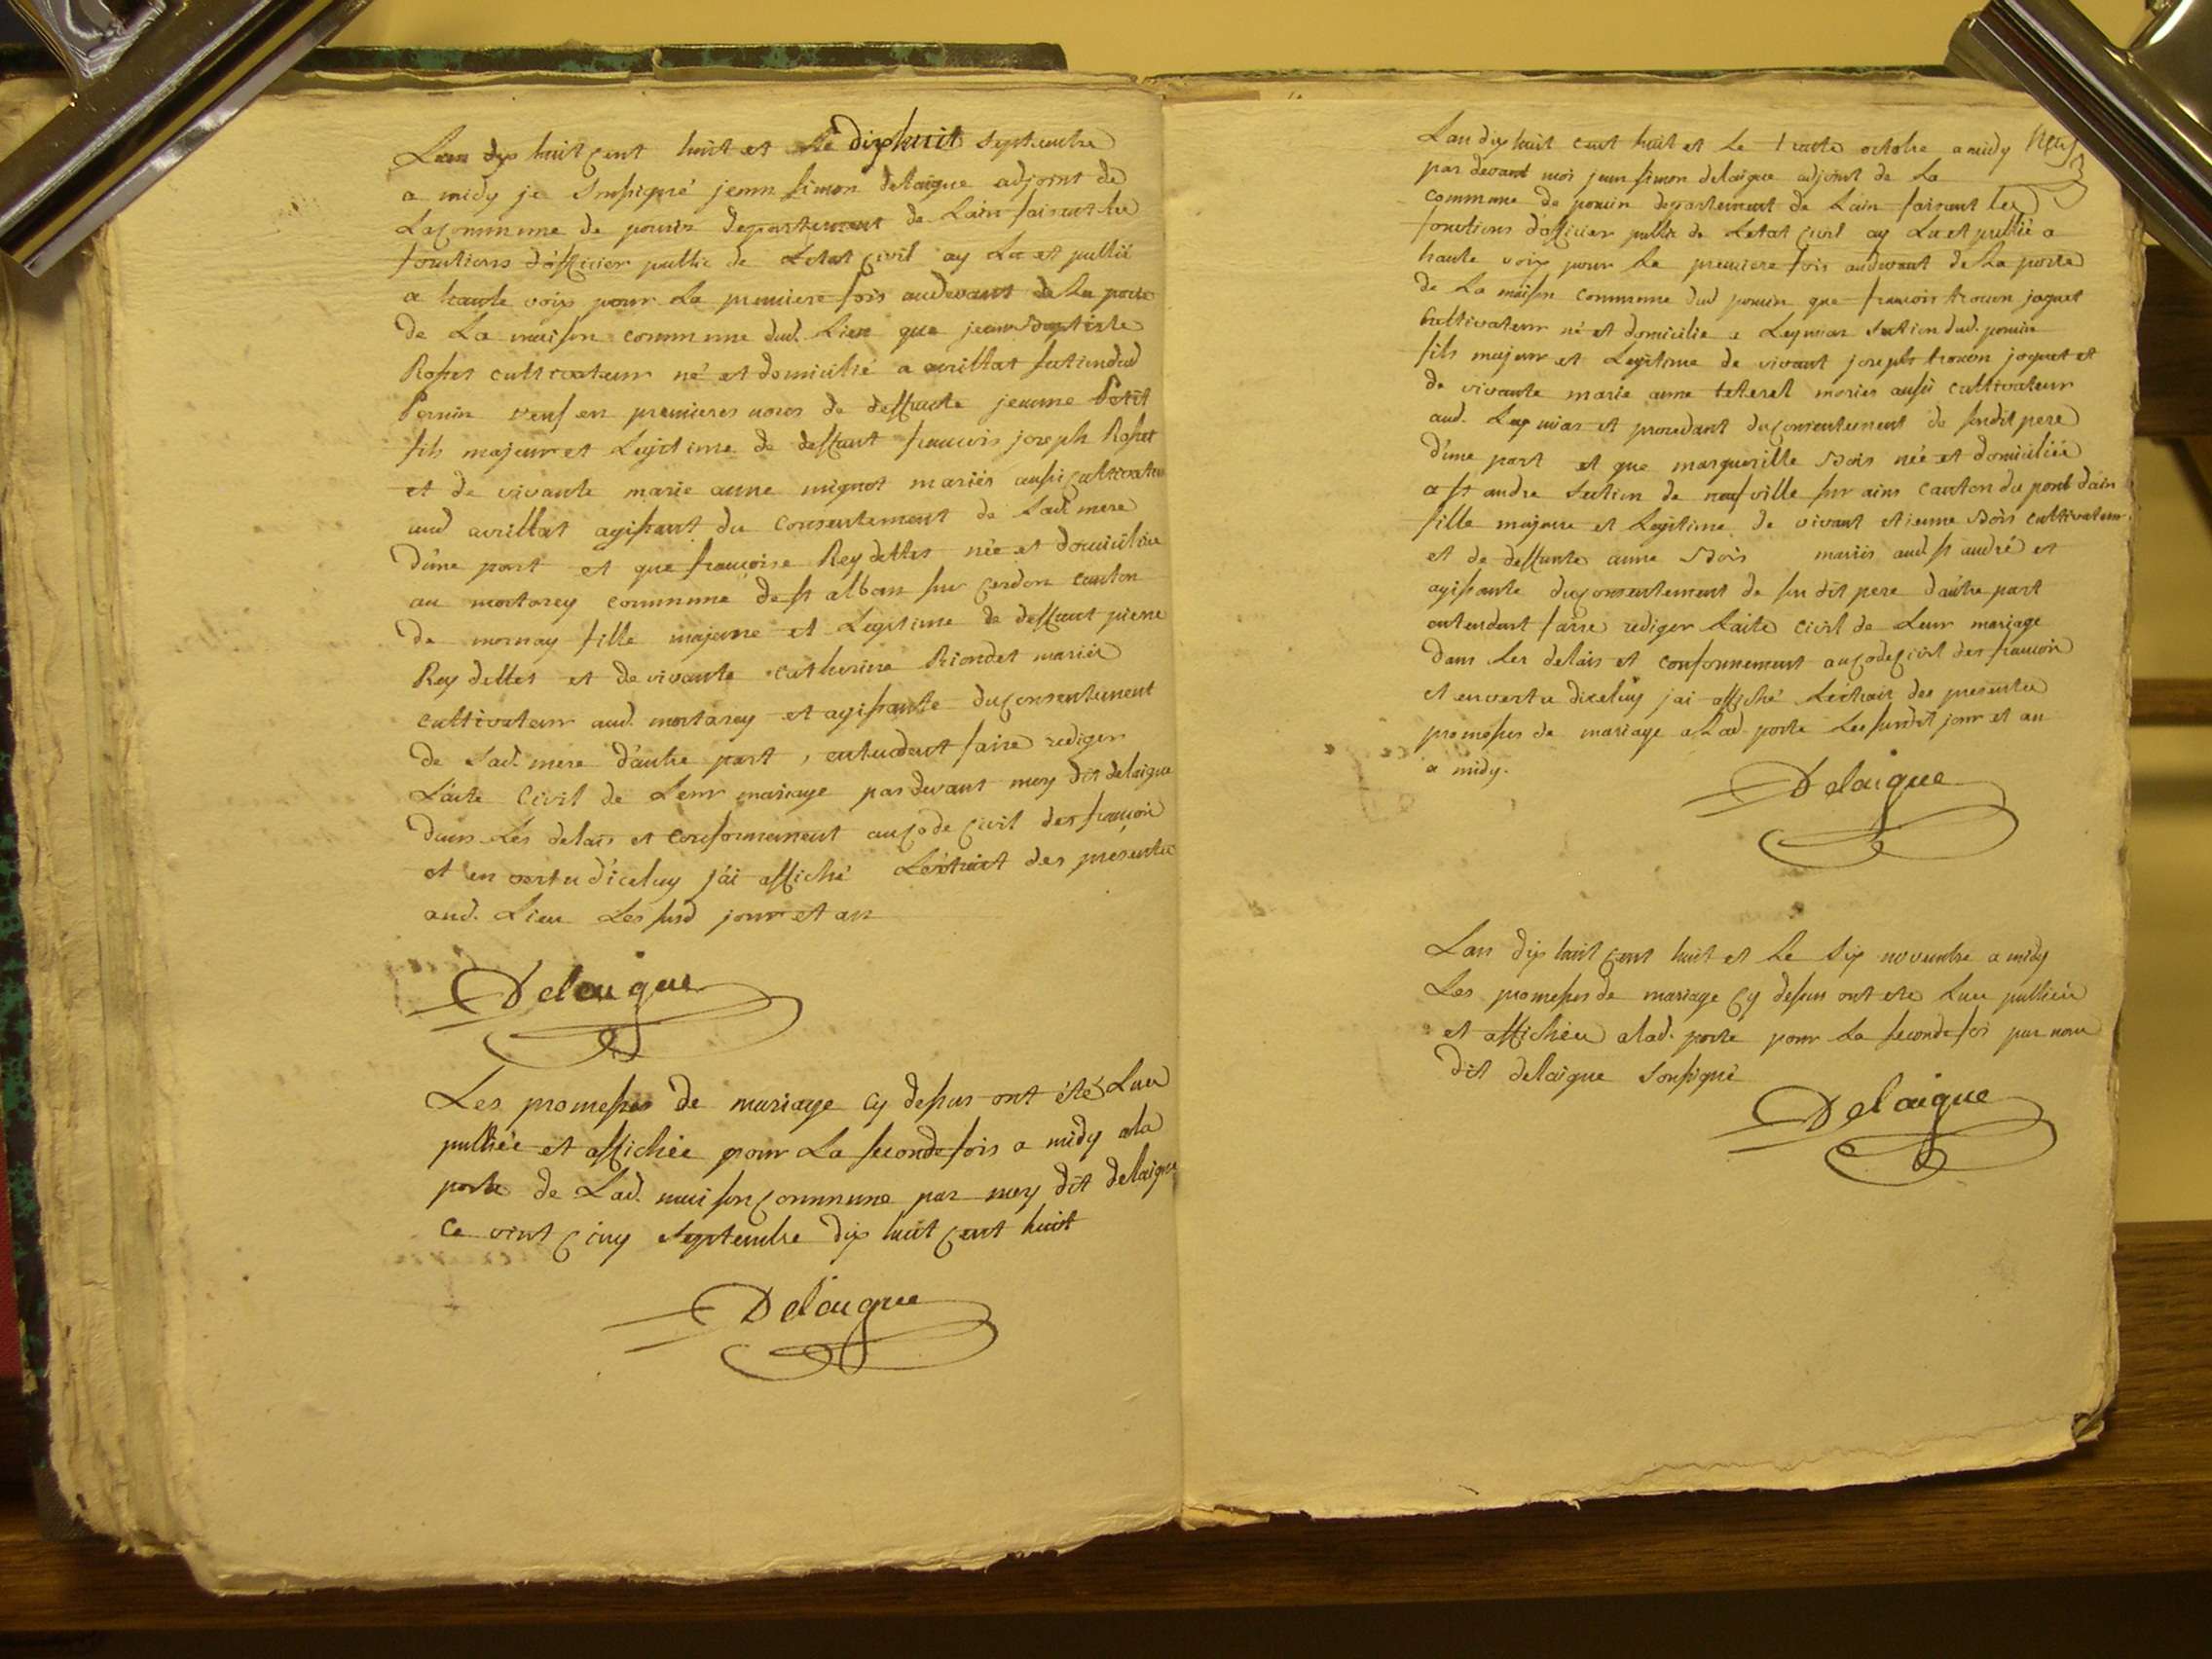 Lan dix huit cent huit et le dixhuit septembre
a midy je soussigné jean simon delaigue adjoint de
la commune de poncin departement de lain faisant les
fonctions d'officier public de letat civil ay lu et publié
a haute voix pour la premiere fois audevant de la porte
de la maison commune dud. lieu que jean Baptiste
Rosset cultivateur né et domicilié a avrillat section dud
Poncin veuf en premieres noces de deffunte jeanne Petit
fils majeur et legitime de deffunt francois joseph Rosset
et de vivante marie anne mignot mariés aussi cultivateurs
aud avrillat agissant du consentement de lad. mere
d'une part et que francoise Reydellet née et domiciliée
au mortarey commune de st alban sur cerdon canton
de mornay fille majeure et legitime de deffunt pierre
Reydellet et de vivante catherine Riondet mariés
cultivateur aud. mortarey et agissante du consentement
de sad. mere d'autre part, entendent faire rediger
l'acte civil de leur mariage pardevant moy dit delaigue
dans les delais et conformement au code civil des francois
et en vertu d'iceluy j'ai affiché l'extrait des presentes
aud. lieu les susd jour et an
Delaigue
Les promesses de mariage cy dessus ont été lues
publiée et affichée pour la seconde fois a midy a la
porte de lad. maison commune par moy dit delaigue
ce vint cinq septembre dix huit cent huit
Delaigue
Lan dix huit cent huit et le trente octobre a midy
par devant moi jean simon delaigue adjoint de la
commune de poncin departement de lain faisant les
fonctions d'officier public de letat civil ay lu et publié a
haute voix pour la premiere fois audevant de la porte
de la maison commune dud poncin que francois trocon joguet
cultivateur né et domicilié a Leymiat section dud. poncin
fils majeur et legitime de vivant joseph trocon joguet et
de vivante marie anne teterel mariés aussi cultivateur
aud. Leymiat et procedant du consentement de sondit pere
d'une part et que margueritte Bois née et domiciliée
a st andre section de neufville sur ains canton du pont d'ain
fille majeure et legitime de vivant etienne Bois cultivateur
et de deffunte anne Bois mariés aud st andré et
agissante du consentement de son dit pere d'autre part
entendent faire rediger l'acte civil de leur mariage
dans les delais et conformement au code civil des francois
et en vertu diceluy jai affiché l'extrait des presentes
promesses de mariage a lad porte les susdit jour et an
a midy.
Delaigue
Lan dix huit cent huit et le six novembre a midy
Les promesses de mariage cy dessus ont ete lues publiées
et affichées a lad. porte pour la seconde fois par nous
dit delaigue soussigné
Delaigue